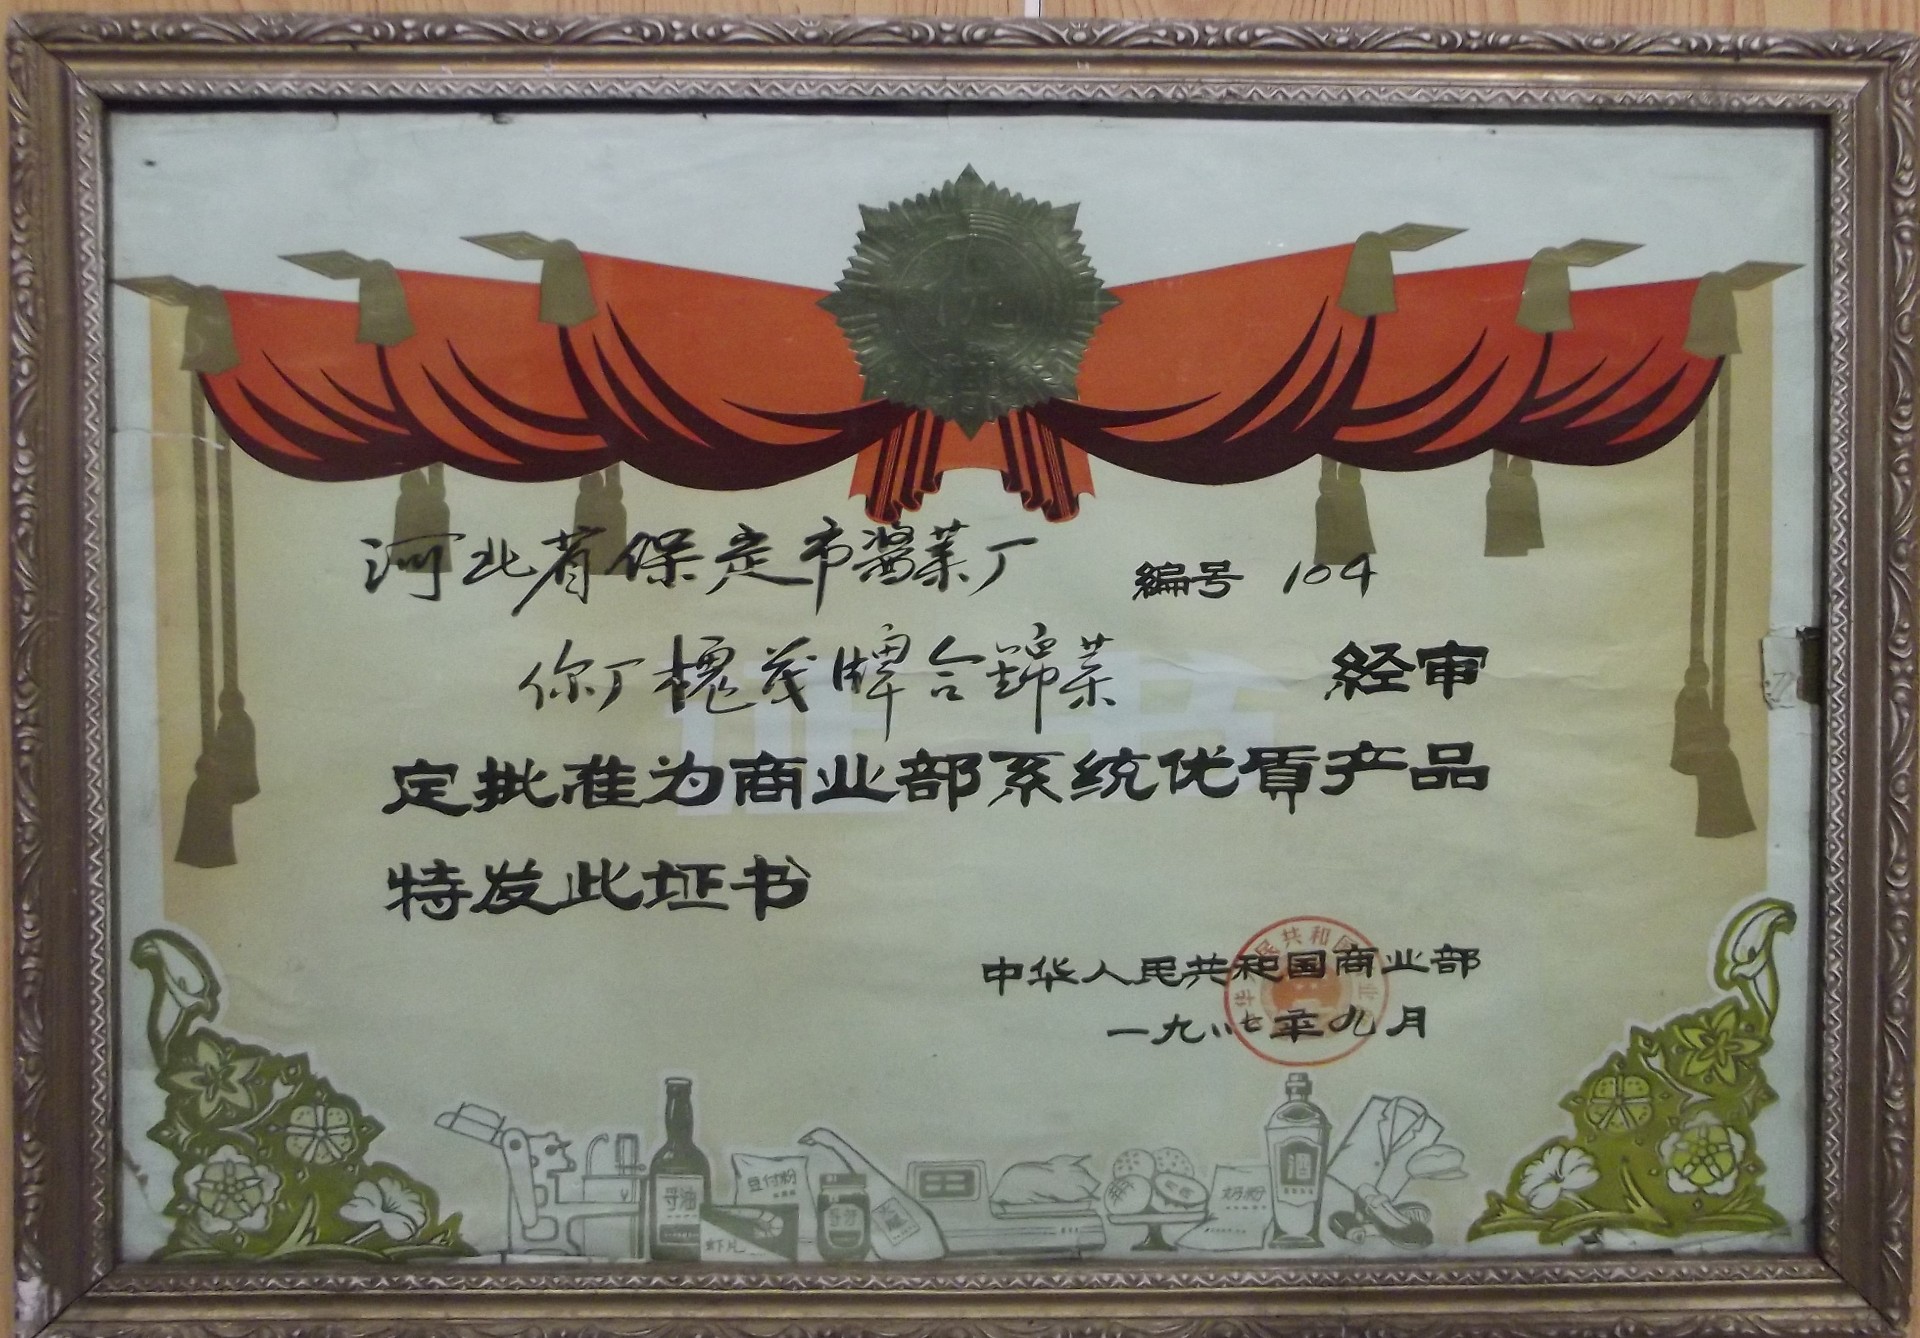 河北省保定市酱菜厂 编号 104
你厂槐茂牌合锦菜 经审
定批准为商业部系统优质产品
特发此证书
中华人民共和国商业部
一九八七年九月
豆付粉
虾片
奶粉
酒